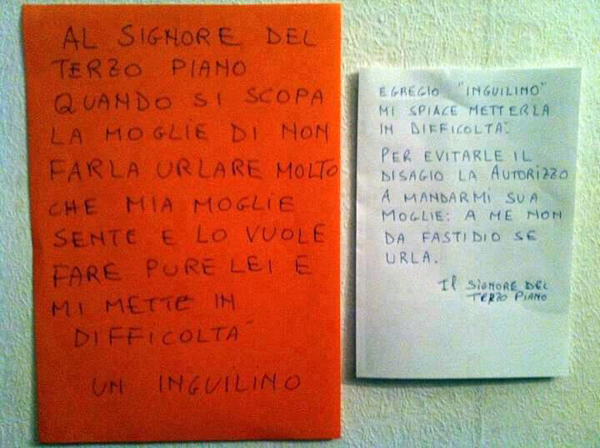 AL SIGNORE DEL
TERZO PIANO
QUANDO SI SCOPA
LA MOGLIE DI NON
FARLA URLARE MOLTO
CHE MIA MOGLIE
SENTE E LO VUOLE
FARE PURE LEI E
MI METTE IN
DIFFICOLTA'
UN INGUILINO
EGREGIO "INGUILINO"
MI SPIACE METTERLA
IN DIFFICOLTA'.
PER EVITARLE IL
DISAGIO LA AUTORIZZO
A MANDARMI SUA
MOGLIE: A ME NON
DA FASTIDIO SE
URLA.
Il SIGNORE DEL
TERZO PIANO